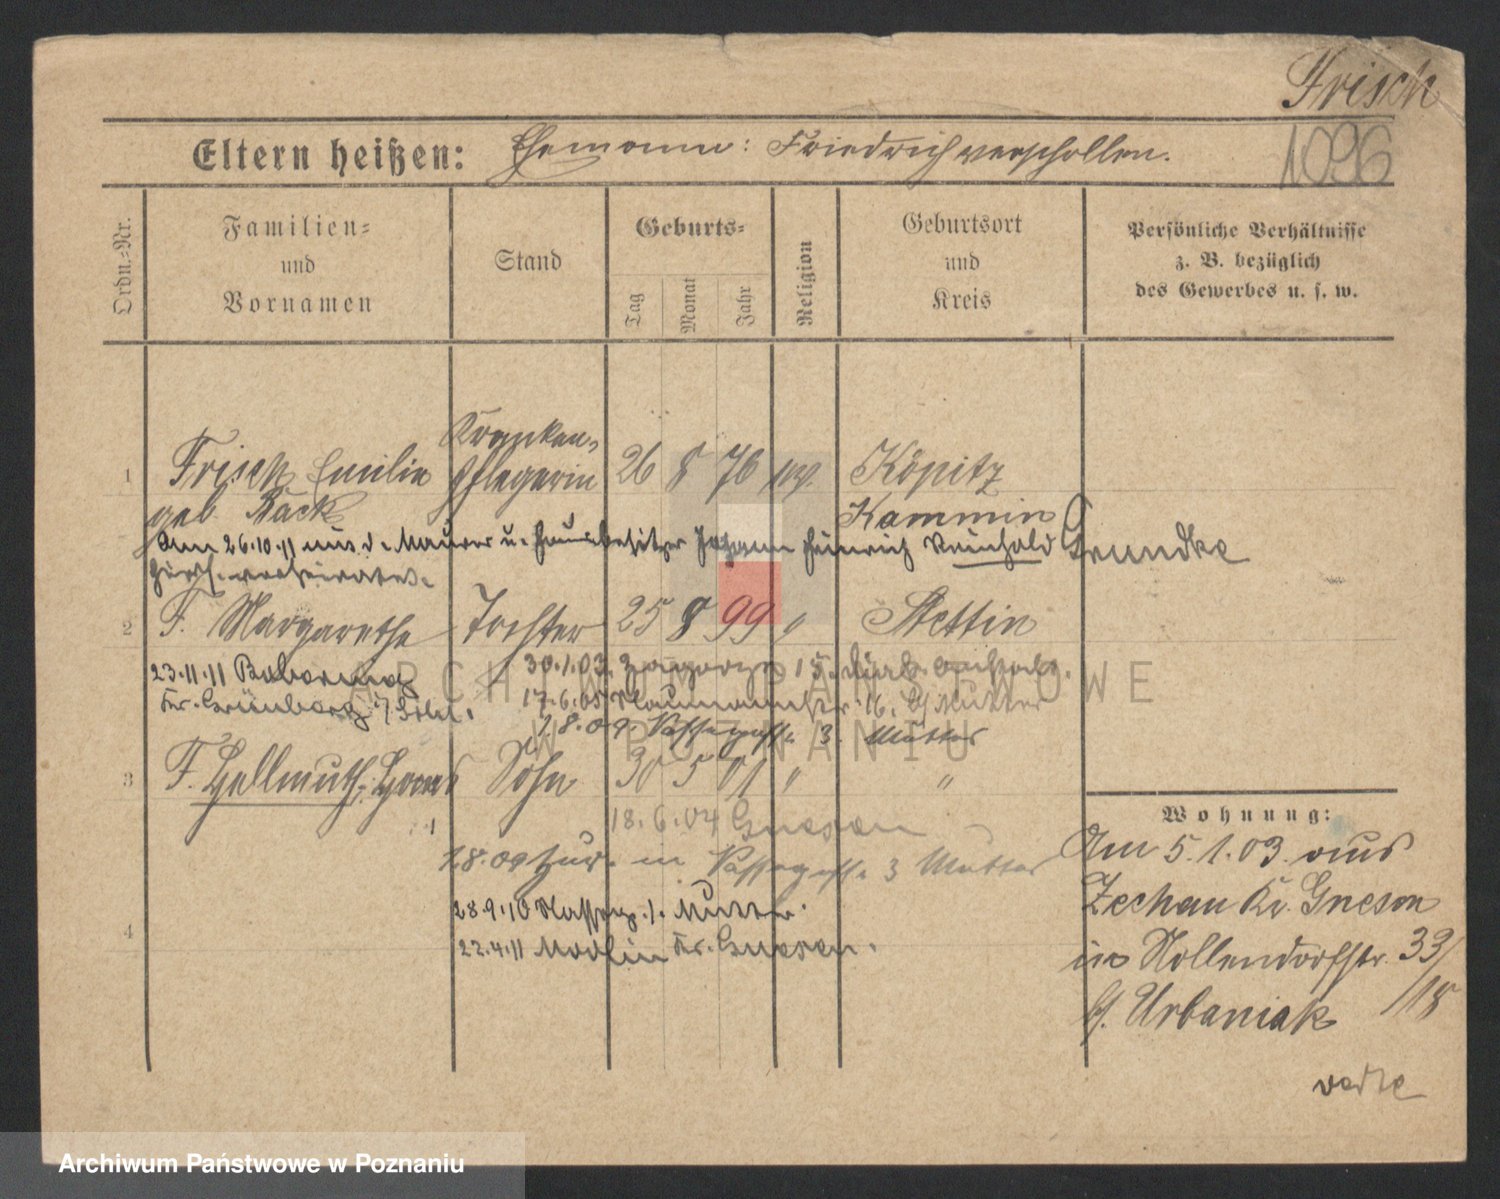 Frisch
1096
Eltern heißen: Ehemann: Friedrich verschollen.
Ordn.-Nr.
Familien-
und
Vornamen
Stand
Geburts-
Tag
Monat
Jahr
Religion
Geburtsort
und
Kreis
Persönliche Verhältnisse
z. B. bezüglich
des Gewerbes u. s. w.
Kranken-
1 Frisch Emilie pflegerin 26 8 76 Köpitz
geb. Kammin
Am 26.10.11 mit d. Maurer u. Hausbesitzer Johann Heinrich Reinhold Grundke
hier verheiratet.
2 F. Margarethe Tochter 25 8 99 " Stettin
23.11.11
30.1.03. 15
Kr. Grünberg i/Schl. 17.6.05 16. b/ Mutter
1.8.09. 3. Mutter
3 F. Hellmuth, Hans Sohn 30 5 01 " "
Wohnung:
18.6.04 Gnesen
1.8.09 zur. in 3 Mutter
28.9.10 Mutter.
22.4.11 Modlin Kr. Gnesen.
4
Am 5.1.03. aus
Zechau Kr. Gnesen
in Nollendorfstr. 33/
b/. Urbaniak /18
ARCHIWUM PAŃSTWOWE
W POZNANIU
Archiwum Państwowe w Poznaniu